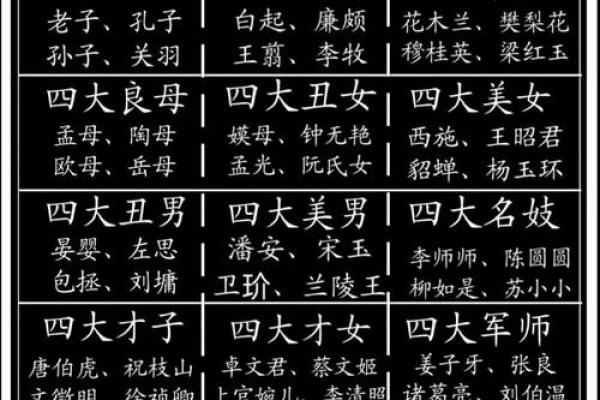 老子、孔子 白起、廉颇 花木兰、樊梨花
孙子、关羽 王翦、李牧 穆桂英、梁红玉
四大良母 四大丑女 四大美女
孟母、陶母 嫫母、钟无艳 西施、王昭君
欧母、岳母 孟光、阮氏女 貂蝉、杨玉环
四大丑男 四大美男 四大名妓
晏婴、左思 潘安、宋玉 李师师、陈圆圆
包拯、刘墉 卫玠、兰陵王 柳如是、苏小小
四大才子 四大才女 四大军师
唐伯虎、祝枝山 卓文君、蔡文姬 姜子牙、张良
文徵明、徐祯卿 上官婉儿、李清照 诸葛亮、刘伯温